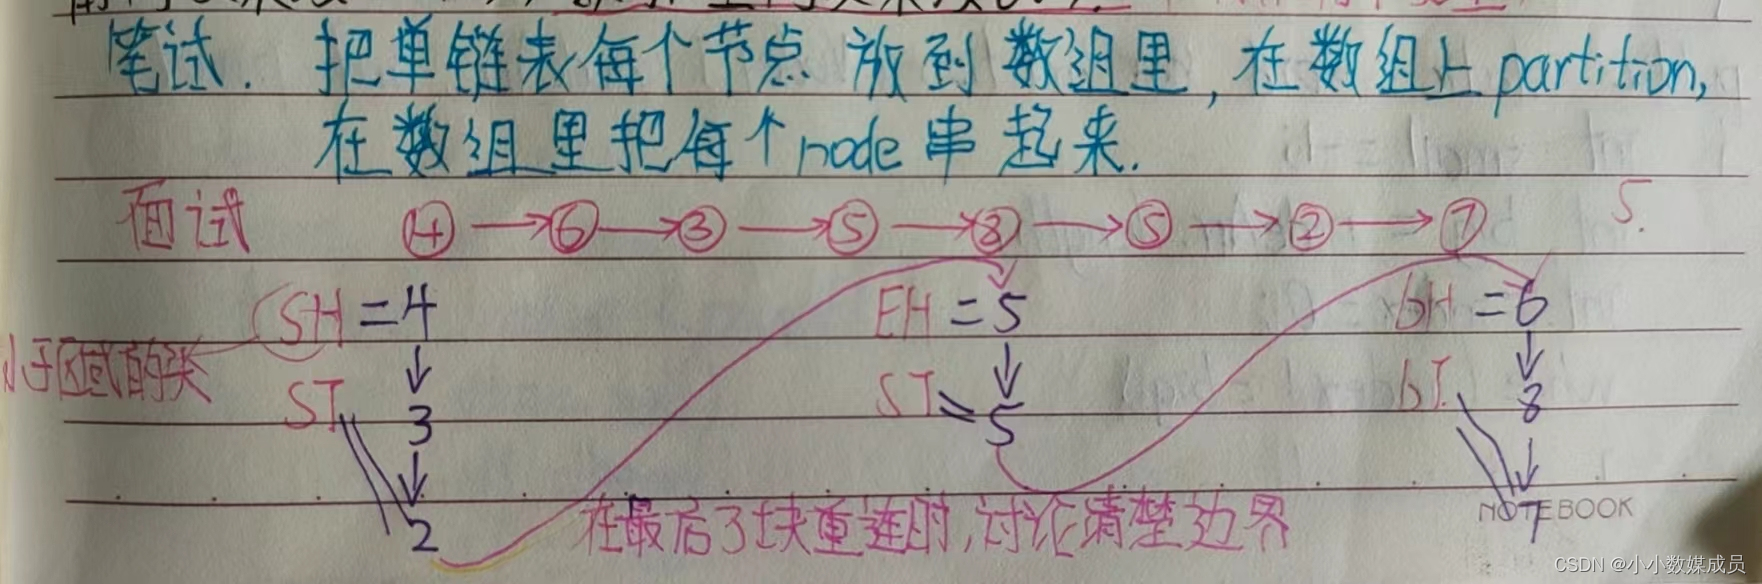 笔试. 把单链表每个节点 放到 数组里, 在数组上partition,
在数组里把每个node串起来.
面试 4 → 6 → 3 → 5 → 8 → 5 → 2 → 7 5.
SH = 4 EH = 5 bH = 6
小于区域的头
ST 3 ST 5 bT 8
2 7
在最后3块重连时,讨论清楚边界
NOTEBOOK
CSDN @小小数媒成员